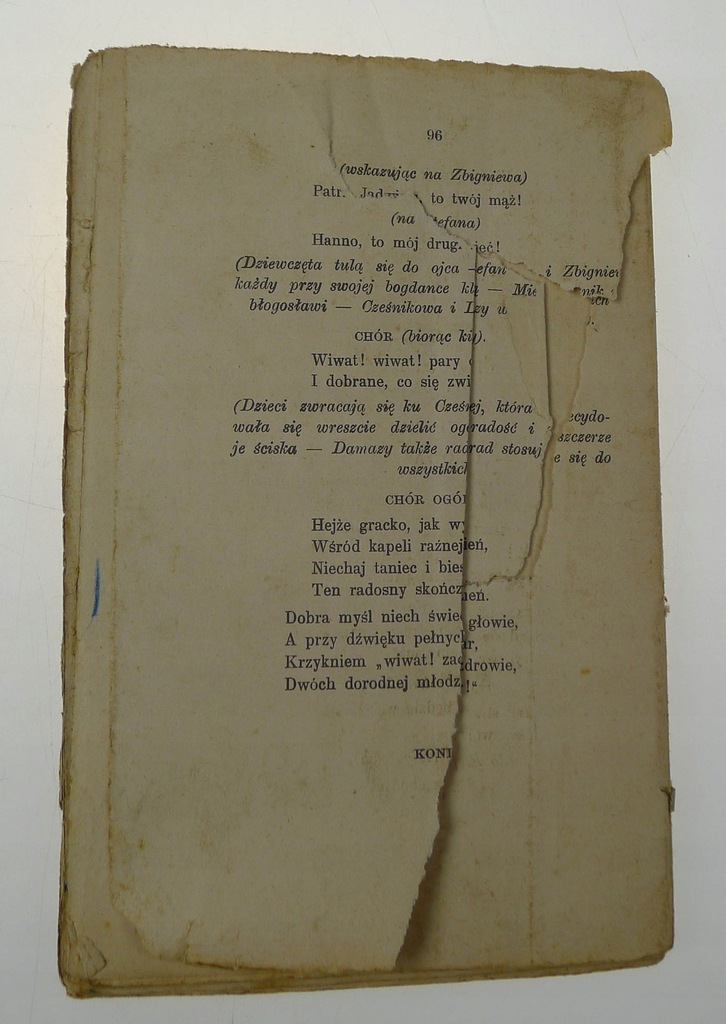 96
(wskazując na Zbigniewa)
Patr. to twój mąż!
(na efana)
Hanno, to mój drug. ięć!
(Dziewczęta tulą się do ojca efan i Zbigniew
każdy przy swojej bogdance klę — Mie nik
błogosławi — Cześnikowa i Izy u
CHÓR (biorąc kie).
Wiwat! wiwat! pary
I dobrane, co się zwi
(Dzieci zwracają się ku Cześ ej, która ecydo-
wała się wreszcie dzielić og radość i szczerze
je ściska — Damazy także ra rad stosuj e się do
wszystkich
CHÓR OGÓ
Hejże gracko, jak wy
Wśród kapeli raźnej ień,
Niechaj taniec i bies
Ten radosny skończ ień.
Dobra myśl niech świec głowie,
A przy dźwięku pełnych ar,
Krzykniem „wiwat! za drowie,
Dwóch dorodnej młodz !“
KONI